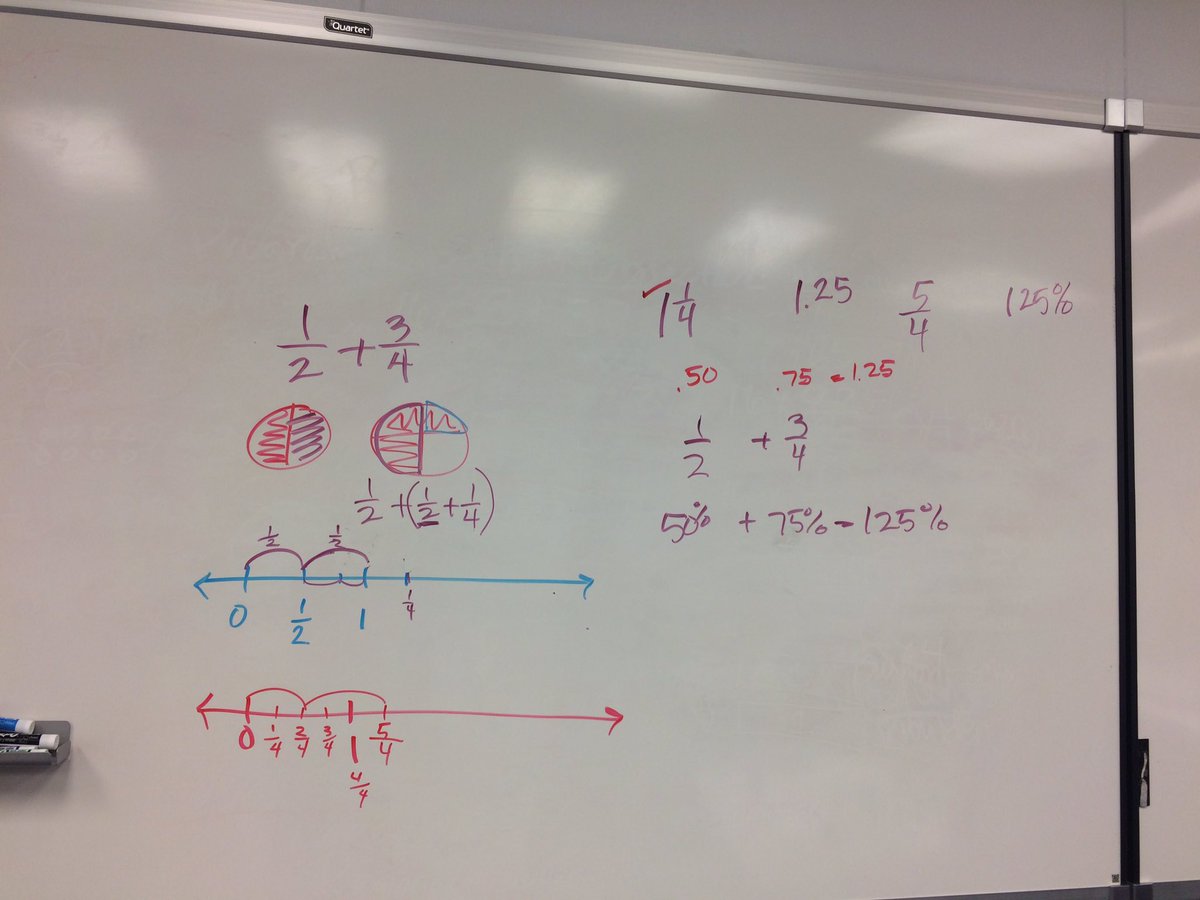 Quartet
1/2 + 3/4
1/2 + (1/2 + 1/4)
1/2 1/2
0 1/2 1 1/4
0 1/4 2/4 3/4 1 5/4
4/4
✓ 1 1/4 1.25 5/4 125%
.50 .75 = 1.25
1/2 + 3/4
50% + 75% = 125%